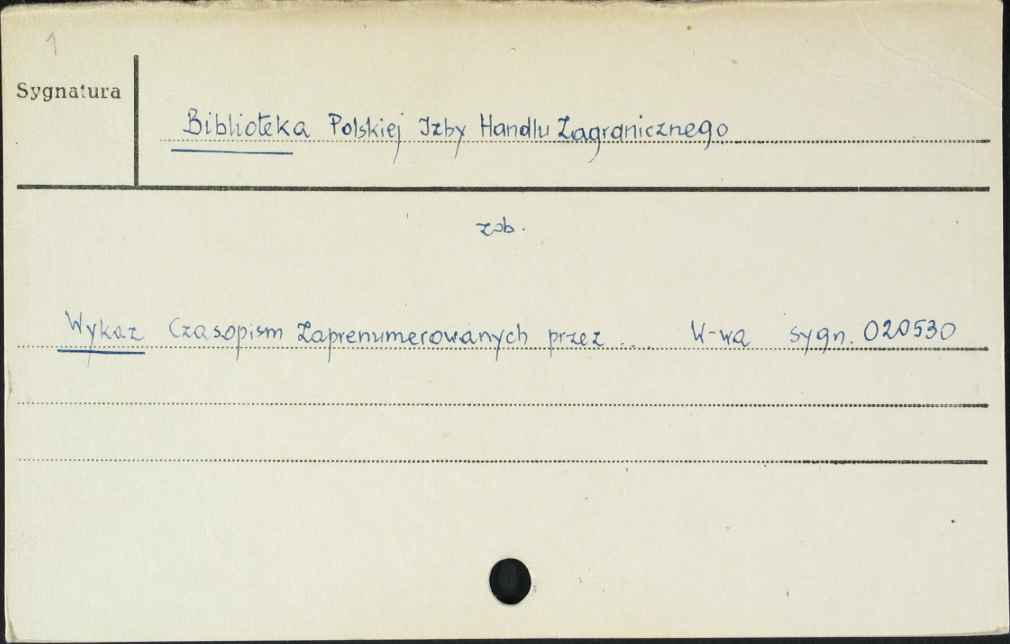 1
Sygnatura
Biblioteka Polskiej Izby Handlu Zagranicznego
zob.
Wykaz Czasopism Zaprenumerowanych przez ... W-wa sygn. 020530